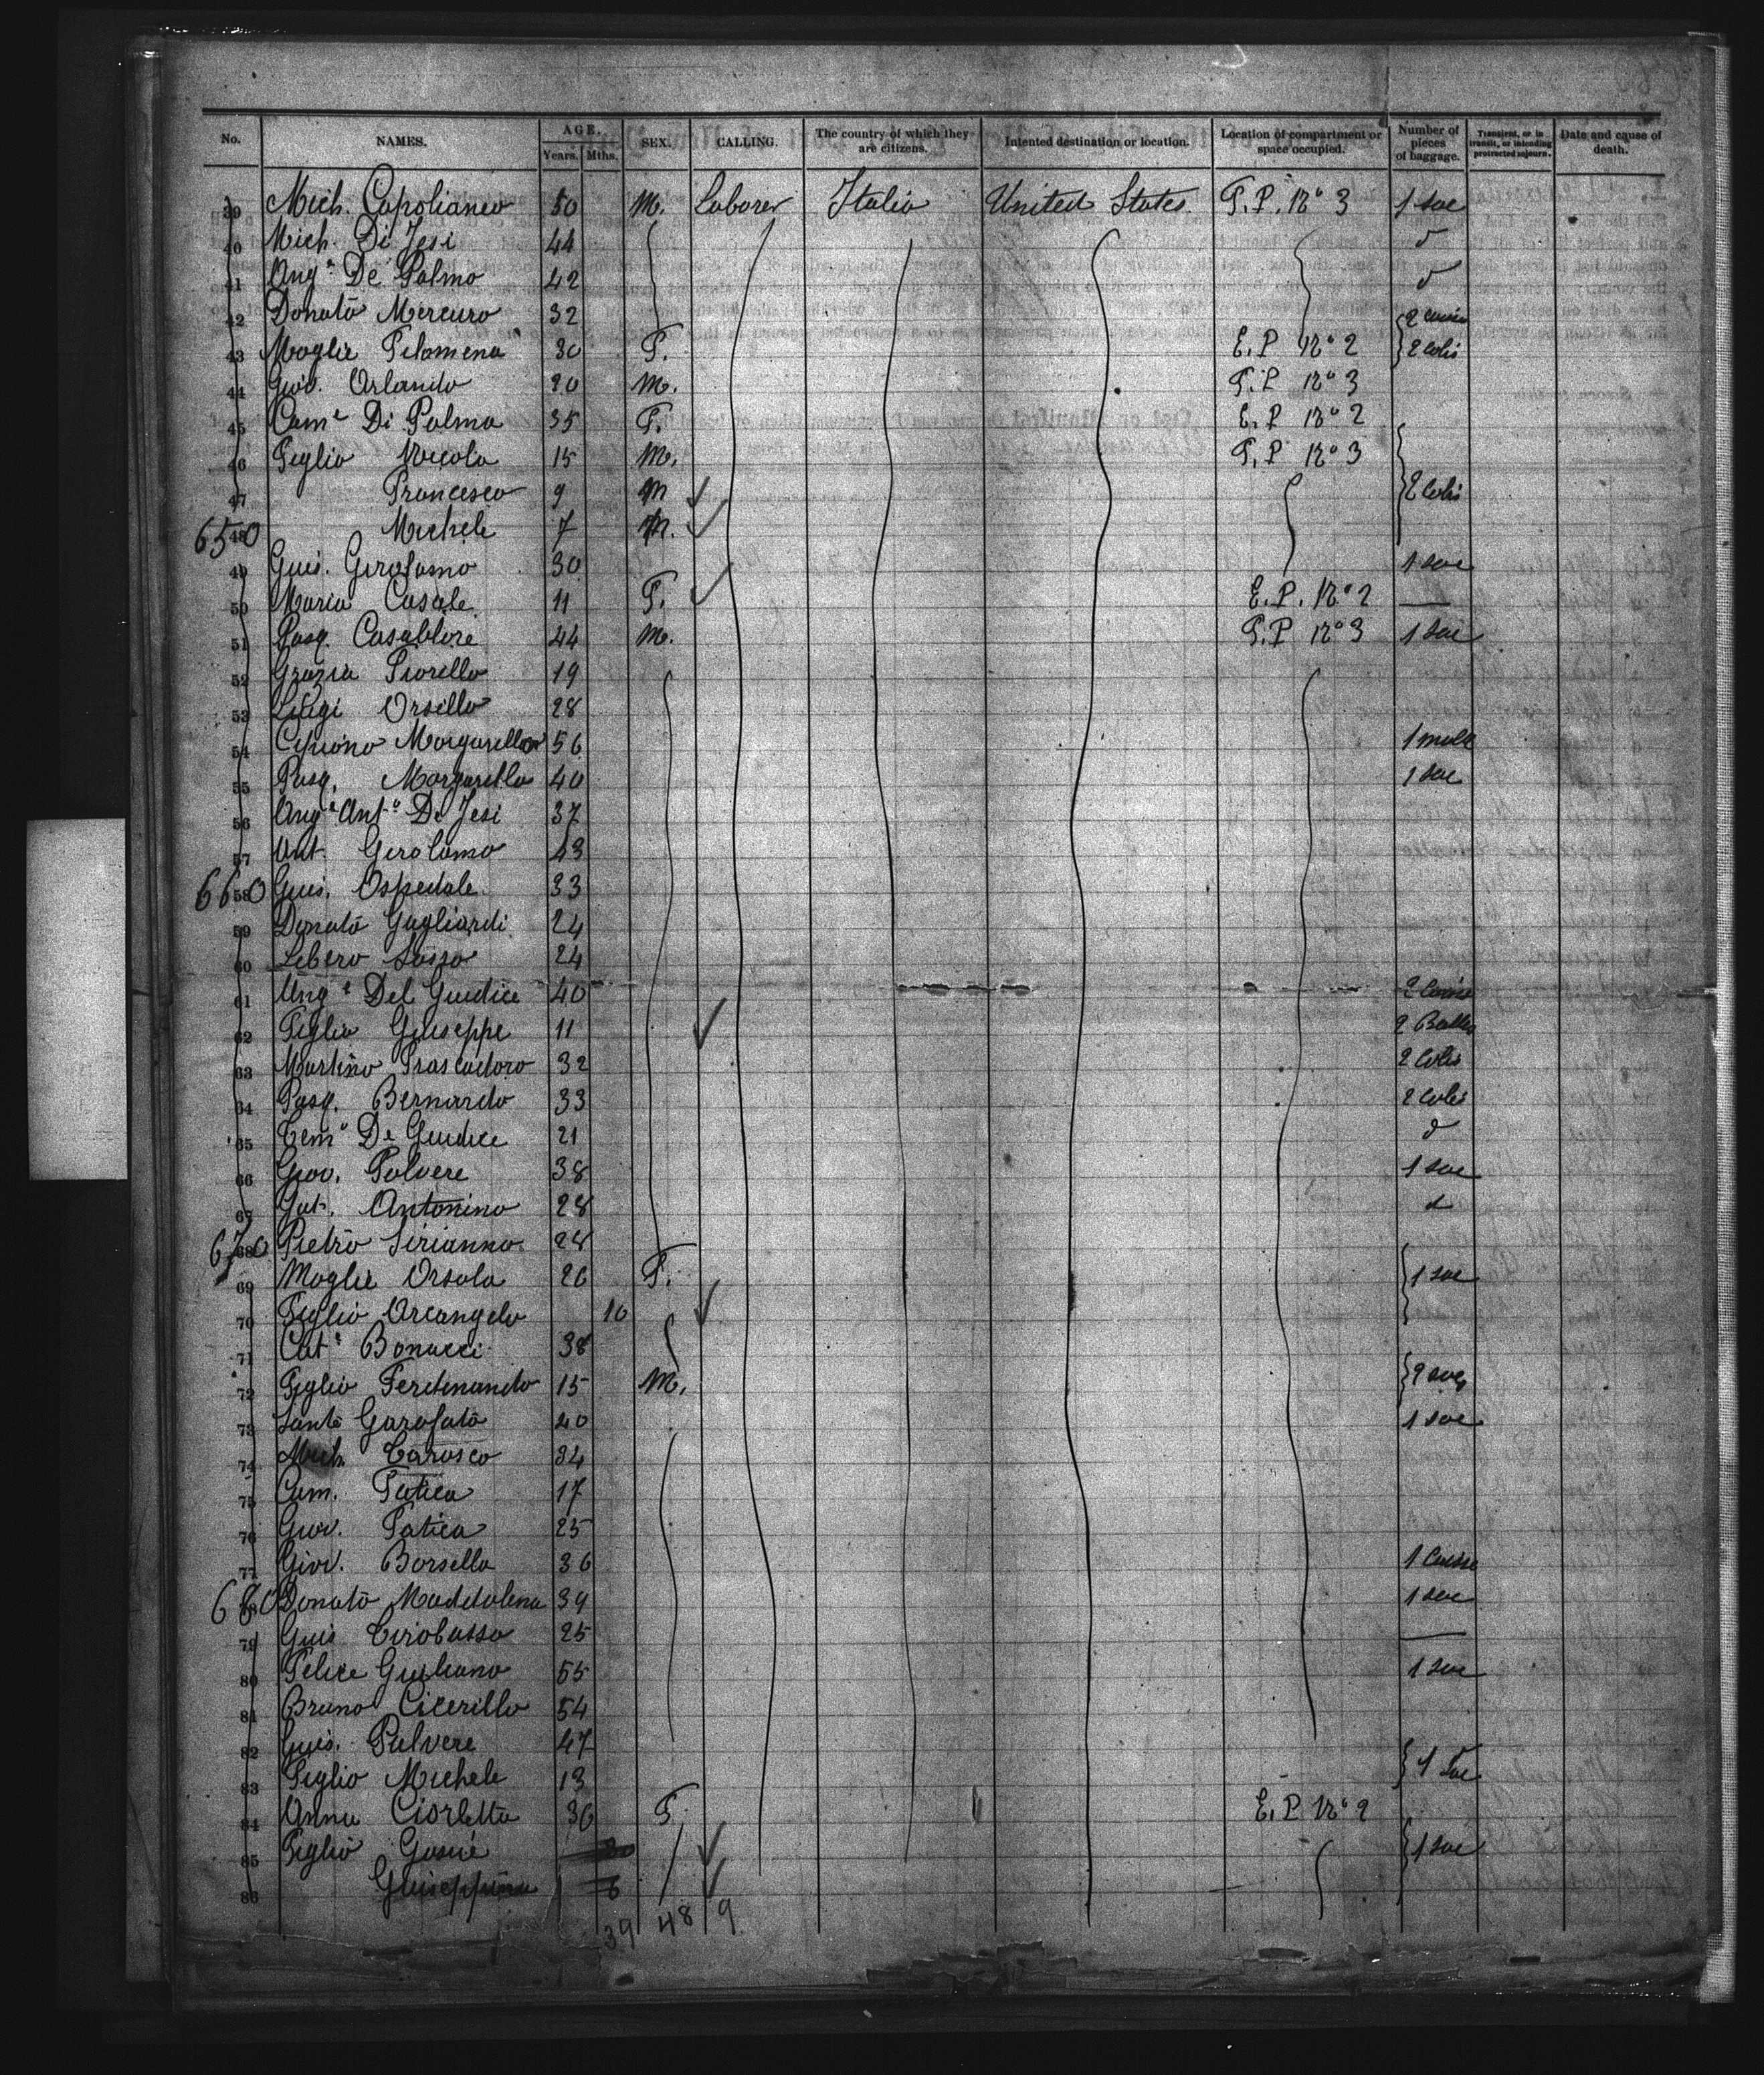 No. NAMES. AGE. Years. Mths. SEX. CALLING. The country of which they are citizens. Intented destination or location. Location of compartment or space occupied. Number of pieces of baggage. Transient, or in transit, or intending protracted sojourn. Date and cause of death.
39 Mich. Capolianco 50 M. Laborer Italia United States F.P. No 3 1 sac
40 Mich. Di Jesi 44 d
41 Anga De Palma 42 d
42 Donato Mercuro 32 2 caisse
43 Moglie Filomena 30 F. E.P No 2 2 colis
44 Giov. Orlando 20 M. F.P No 3
45 Carma Di Palma 35 F. E.P No 2
46 Figlio Nicola 15 M. F.P No 3
47 Francesco 9 M 2 colis
650 48 Michele 7 M.
49 Guis. Gerolamo 30 1 sac
50 Maria Casale 11 F. E.P. No 2 —
51 Pasq. Casablore 44 M. F.P No 3 1 sac
52 Grazia Fiorella 19
53 Luigi Orsillo 28
54 Cipriano Margarella 56 1 malle
55 Pasq. Margarella 40 1 sac
56 Ango Anto Di Jesi 37
57 Ant. Gerolamo 43
660 58 Guis. Ospedale 33
59 Donato Gagliardi 24
60 Libero Sasso 24
61 Ango Del Giudice 40 2 caisse
62 Figlio Giuseppe 11 2 Balles
63 Martino Frascadoro 32 2 colis
64 Pasq. Bernardo 33 2 colis
65 De Giudice 21 d
66 Giov. Polvere 38 1 sac
67 Antonino 28 d
670 68 Pietro Sirianno 28
69 Moglie Orsola 26 F. 1 sac
70 Figlio Arcangelo 10
71 Cata Bonacci 38
72 Figlio Ferdinando 15 M. 2 sacs
73 Santo Garofalo 40 1 sac
74 Mich. Carosco 34
75 Carm. Fatica 17
76 Giov. Fatica 25
77 Giov. Borsella 36 1 caisse
680 78 Donato Maddalena 39 1 sac
79 Guis Cirobasso 25 —
80 Felice Giuliano 55 1 sac
81 Bruno Cicerillo 54
82 Guis. Pulvere 47
83 Figlio Michele 13 1 sac
84 Anna Ciorletta 36 F. E.P No 2
85 Figlio Gosué 1 sac
86 Giuseppina 6
39 48 9